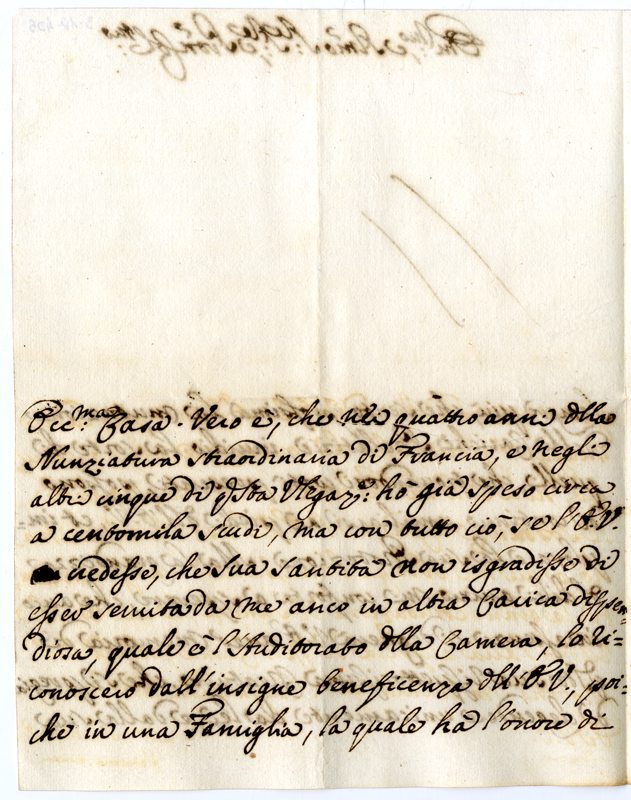 Ecc:ma Casa. Vero è, che nelli quattro anni dlla
Nunziatura straordinaria di Francia, e negli
altri cinque di qsta Vlegaz:e hò già speso circa
a centomila scudi, ma con tutto ciò, se l'E.V.
uedesse, che Sua Santità non isgradisse di
esser seruita da me anco in altra Carica dispen=
diosa, quale è l'Auditorato dlla Camera, lo ri=
conoscerò dall'insigne beneficenza dll'E.V., poi=
che in una Famiglia, la quale ha l'onore di